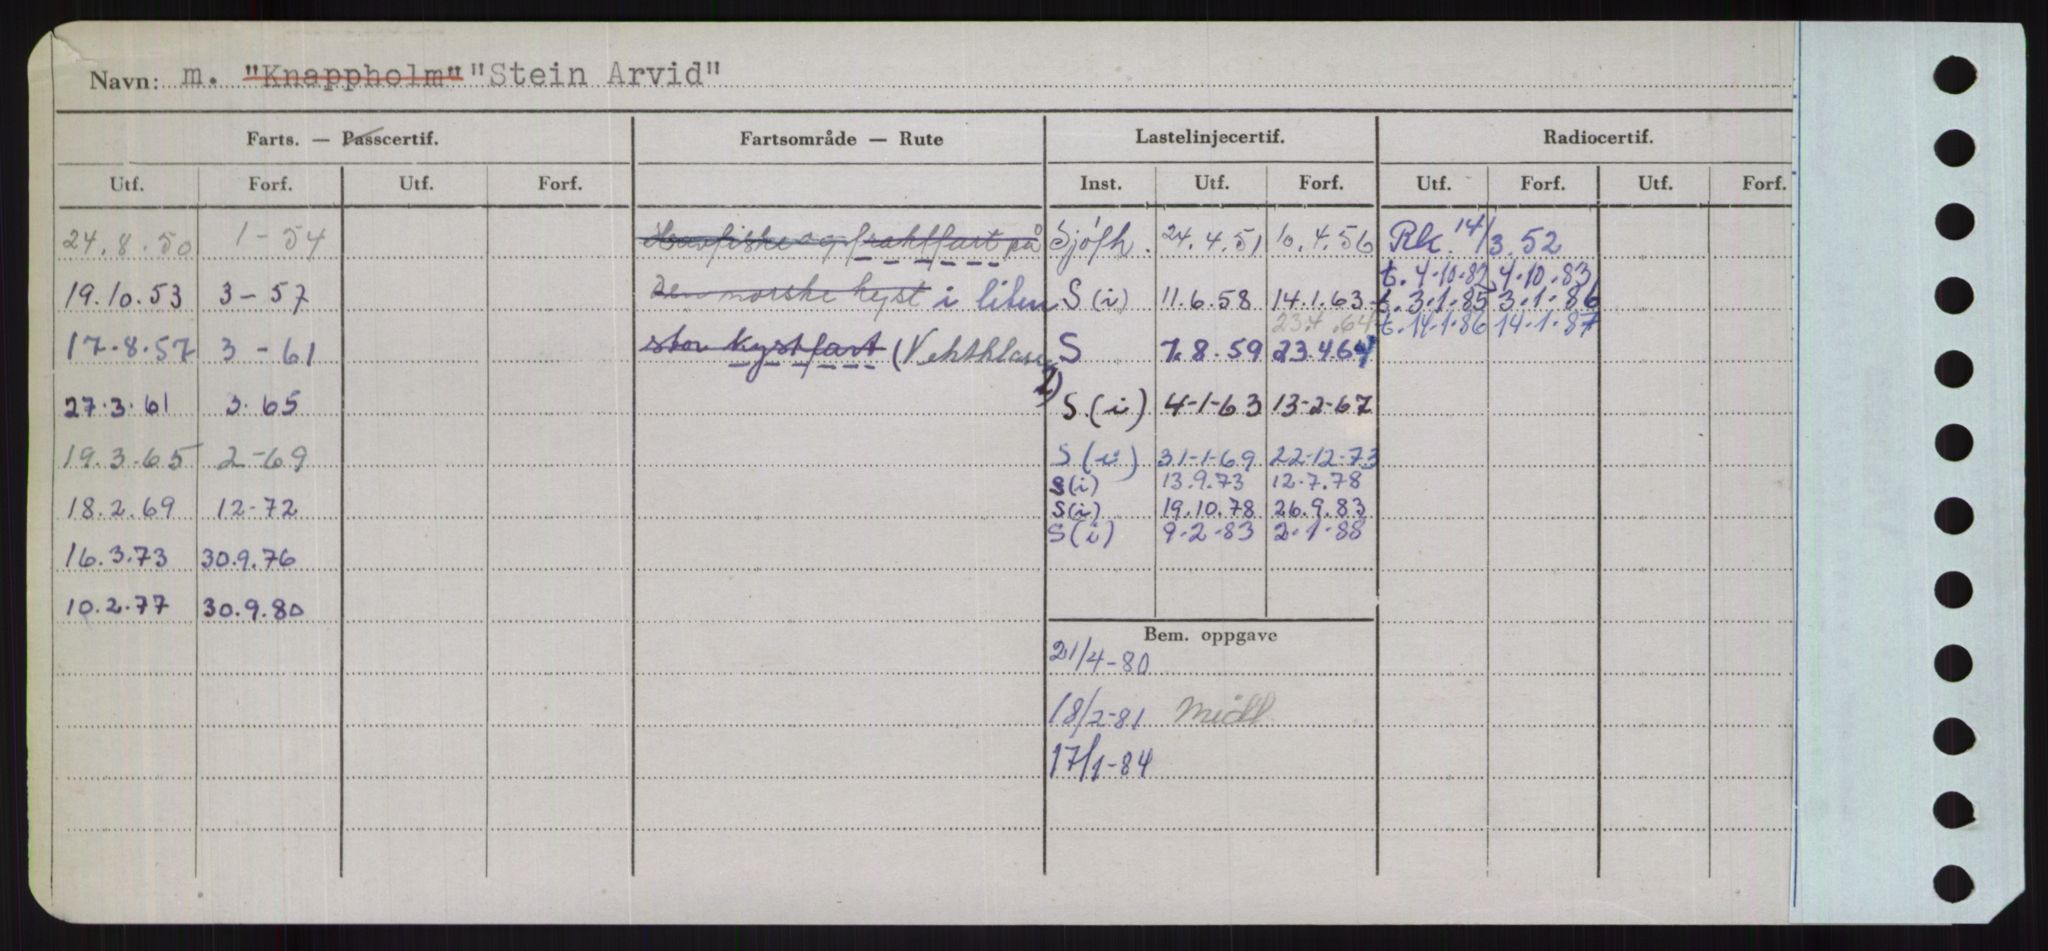 Navn: m. "Knappholm" "Stein Arvid"
Farts. — Passcertif. Fartsområde — Rute Lastelinjecertif. Radiocertif.
Utf. Forf. Utf. Forf. Inst. Utf. Forf. Utf. Forf. Utf. Forf.
24.8.50 1-54 Havfiske og fraktfart på Sjøfk. 24.4.51 10.4.56 Rk. 14/3.52
t. 4.10.82 4.10.83
19.10.53 3-57 Den norske kyst i liten S (i) 11.6.58 14.1.63 t. 3.1.85 3.1.86
23.4.64 t. 14.1.86 14.1.87
17.8.57 3-61 stor kystfart S 7.8.59 23.4.64
27.3.61 3.65 S.(i) 4-1-63 13-2-67
19.3.65 2-69 S (i) 31-1-69 22-12-73
S(i) 13.9.73 12.7.78
18.2.69 12-72 S(i) 19.10.78 26.9.83
S(i) 9.2.83 2.1.88
16.3.73 30.9.76
10.2.77 30.9.80
Bem. oppgave
21/4-80
18/2-81
17/1-84